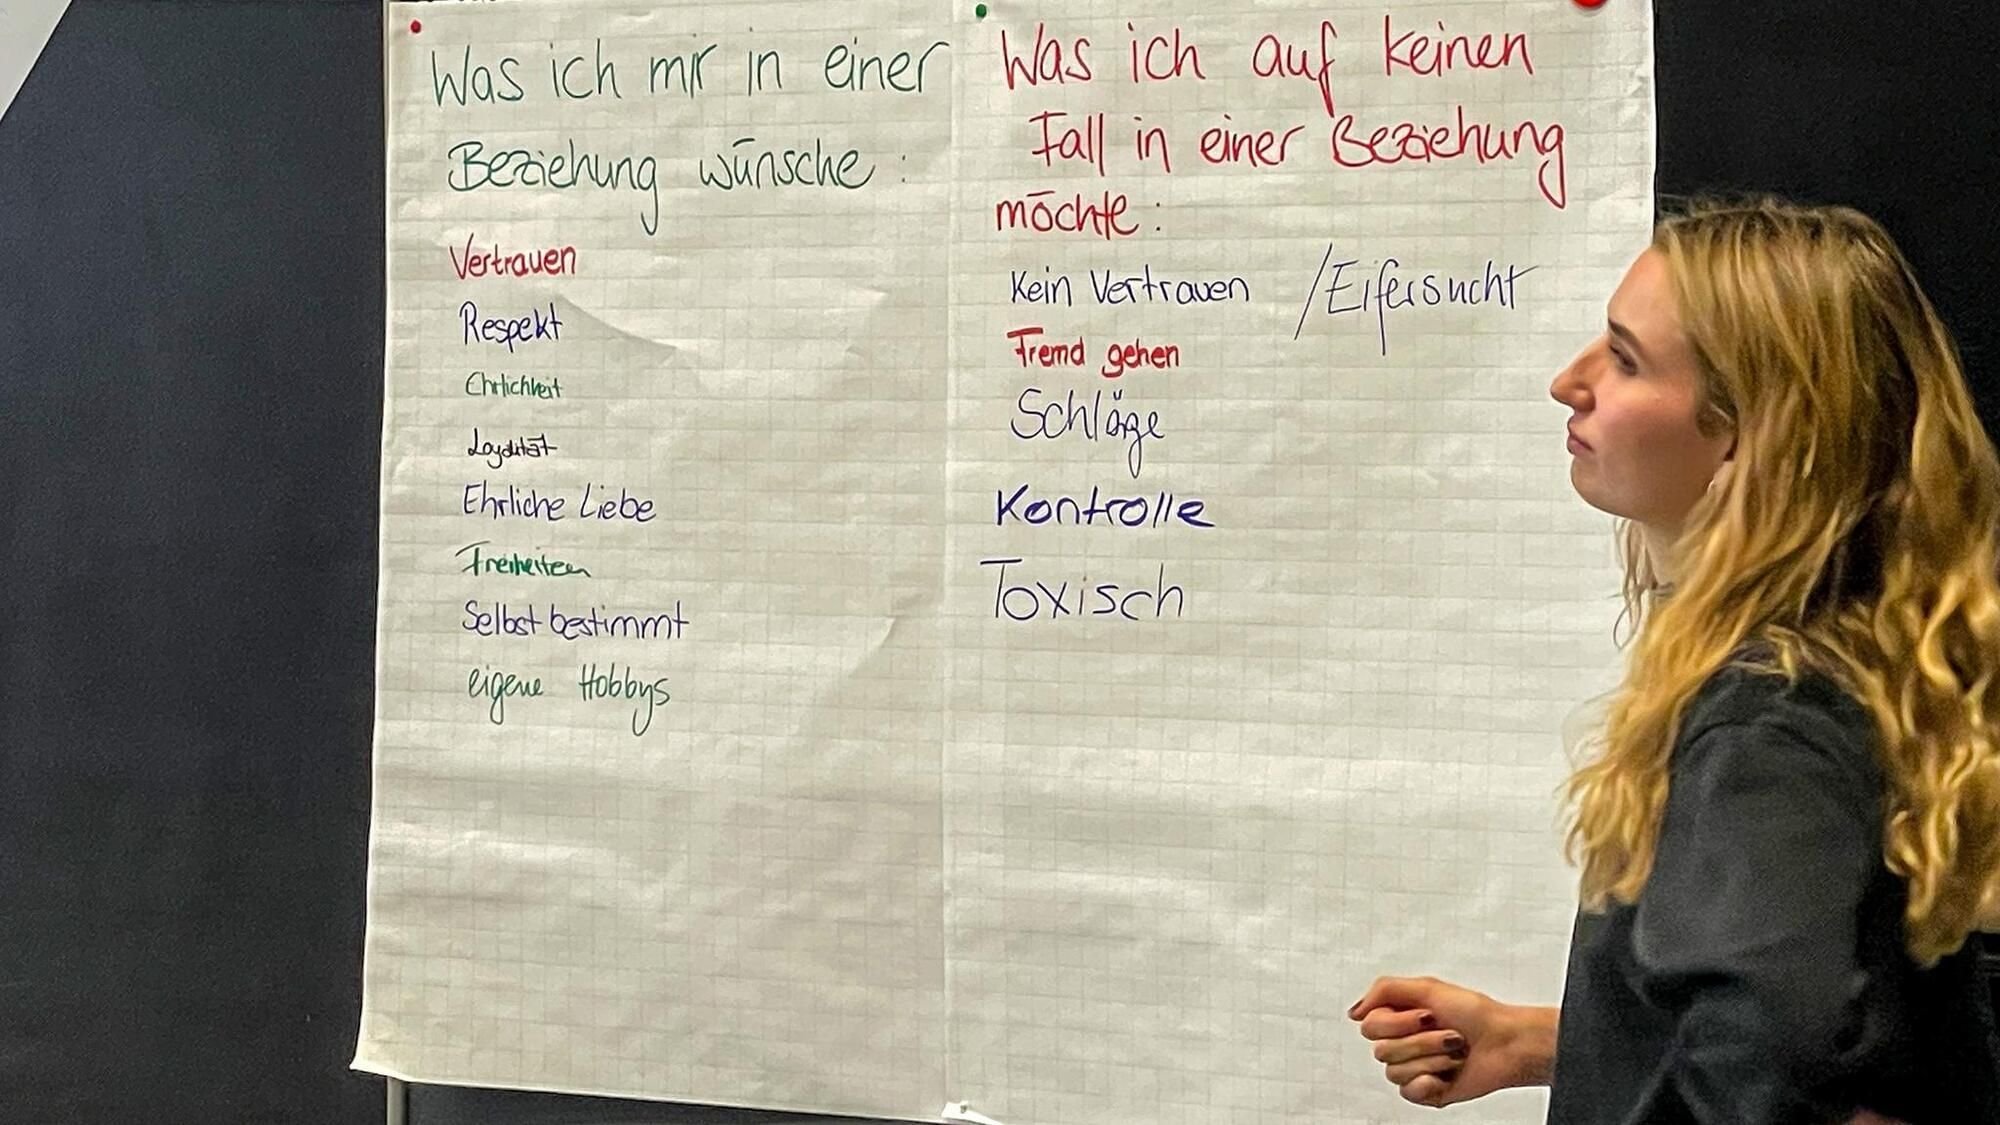 Was ich mir in einer
Beziehung wünsche :
Vertrauen
Respekt
Ehrlichkeit
Loyalität
Ehrliche Liebe
Freiheiten
Selbstbestimmt
eigene Hobbys
Was ich auf keinen
Fall in einer Beziehung
möchte :
Kein Vertrauen /Eifersucht
Fremd gehen
Schläge
Kontrolle
Toxisch